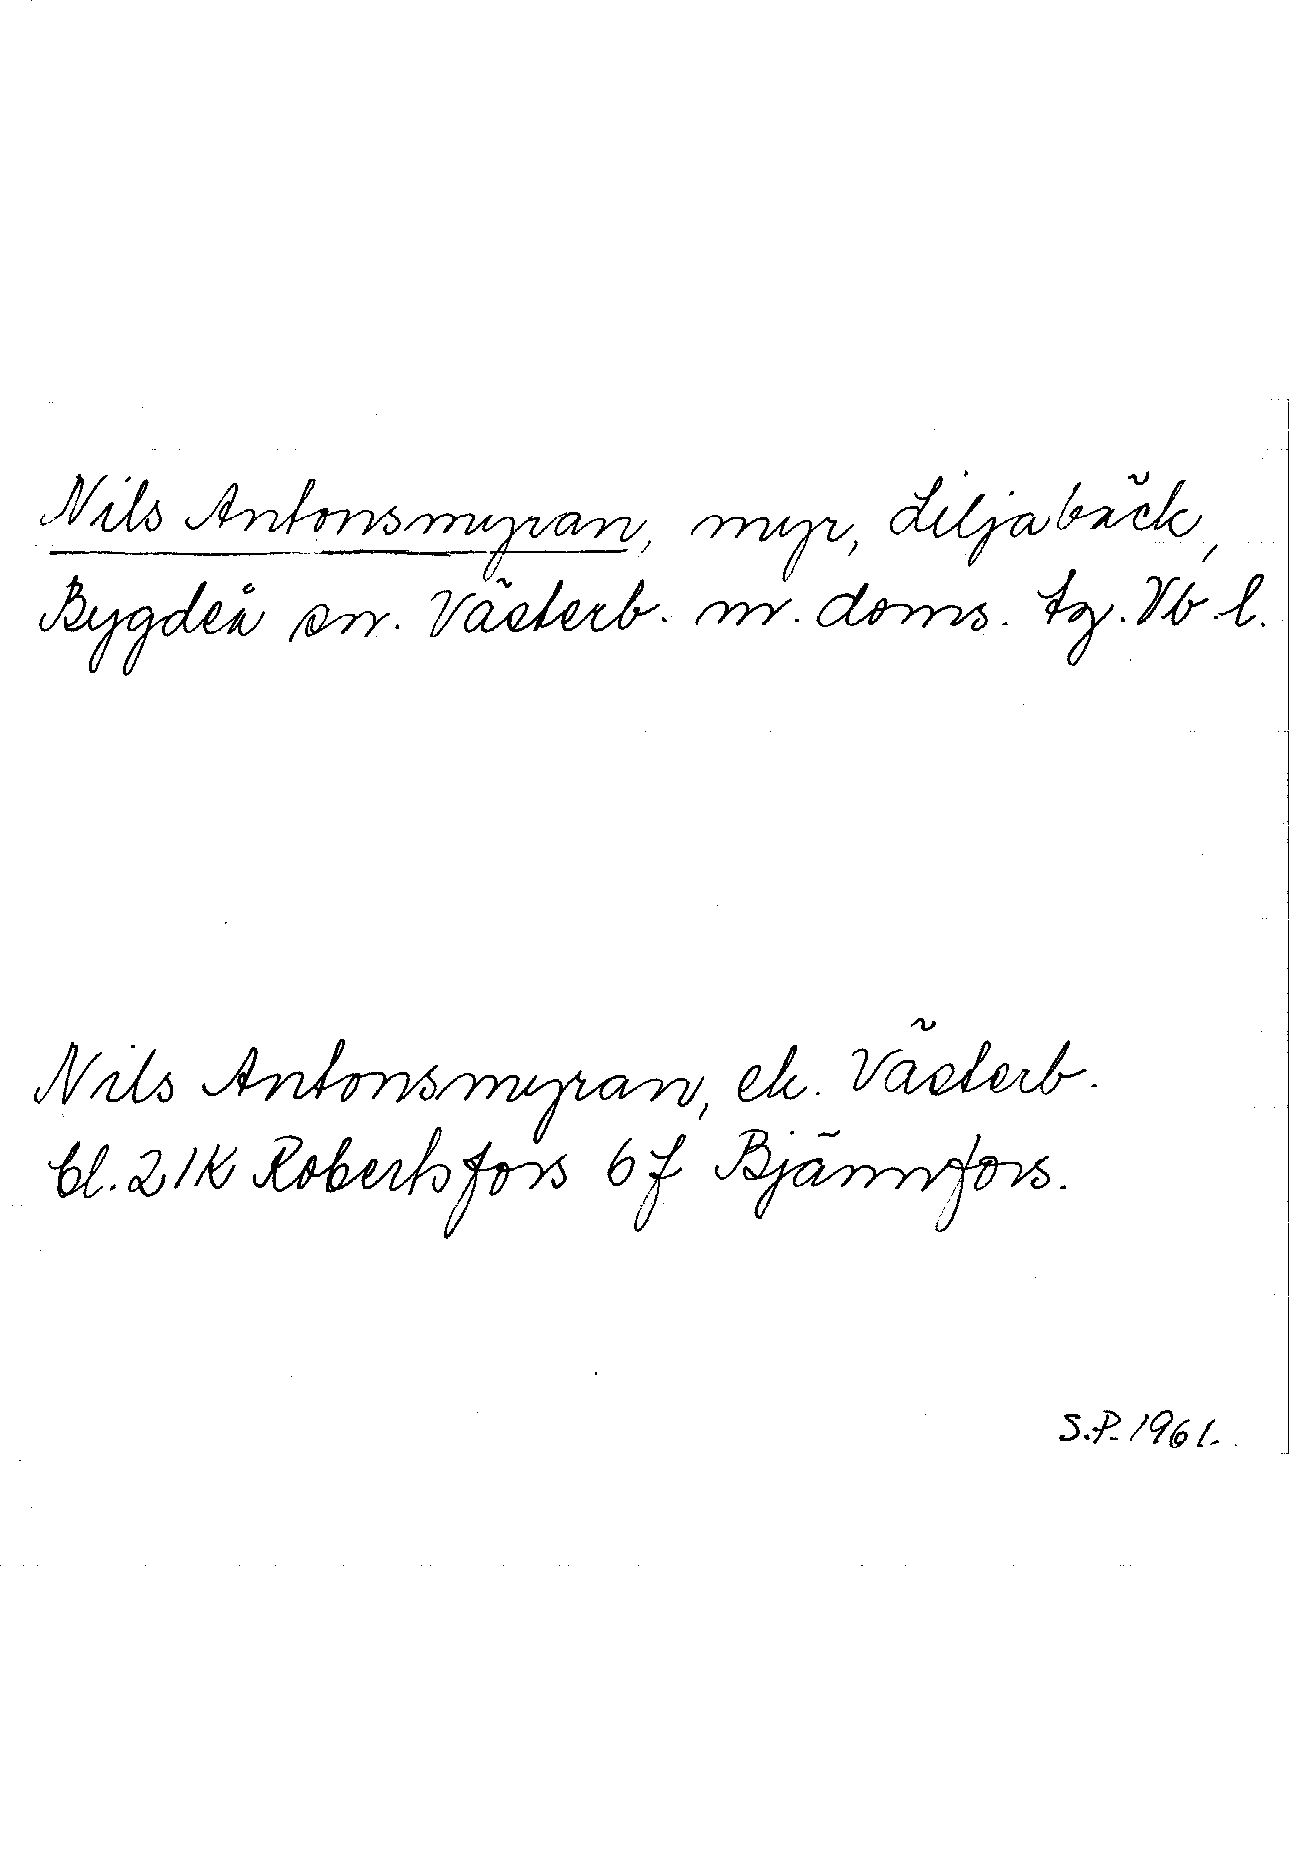 Nils Antonsmyran, myr, Liljabäck,
Bygdeå sn. Västerb. n. doms. tg. Vb. l.
Nils Antonsmyran, ek. Västerb.
bl. 21K Robertsfors 6f Bjännfors.
S.P. 1961.